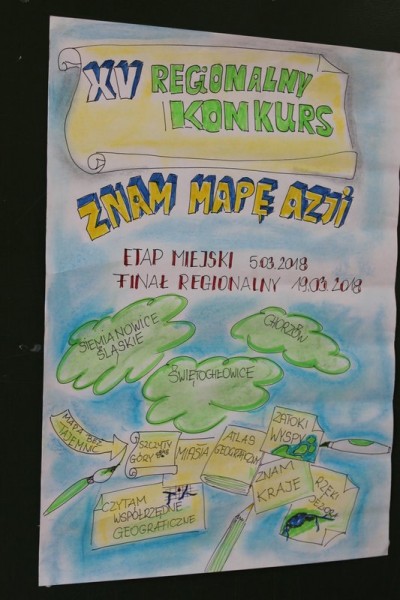 XV REGIONALNY
KONKURS
ZNAM MAPĘ AZJI
ETAP MIEJSKI 5.03.2018
FINAŁ REGIONALNY 19.03.2018
SIEMIANOWICE
ŚLĄSKIE
CHORZÓW
ŚWIĘTOCHŁOWICE
MAPA BEZ
TAJEMNIC
SZCZYTY
GÓRY
MIASTA
ATLAS
GEOGRAFICZNY
ZATOKI
WYSPY
ZNAM
KRAJE
RZEKI
JEZIORA
CZYTAM
WSPÓŁRZĘDNE
GEOGRAFICZNE